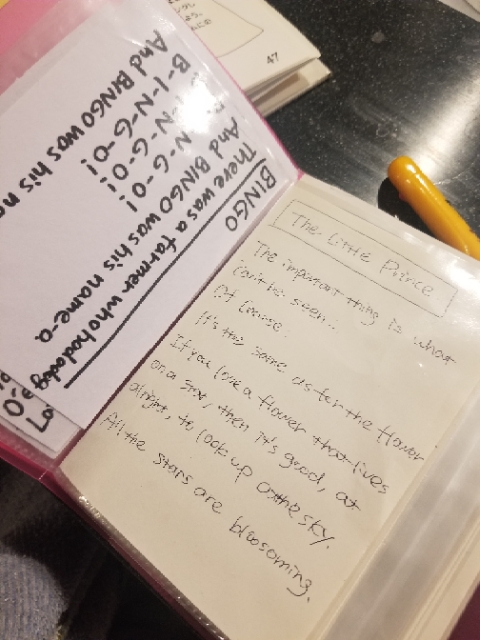 47
BINGO
There was a farmer who had a dog
And BINGO was his name-o.
N-G-O!
N-G-O!
B-I-N-G-O!
And BINGO was his na
The Little Prince
The important thing is what
can't be seen..
Of course.
It's the same as for the flower
If you love a flower that lives
on a star, then it's good, at
night, to look up at the sky.
All the stars are blossoming.